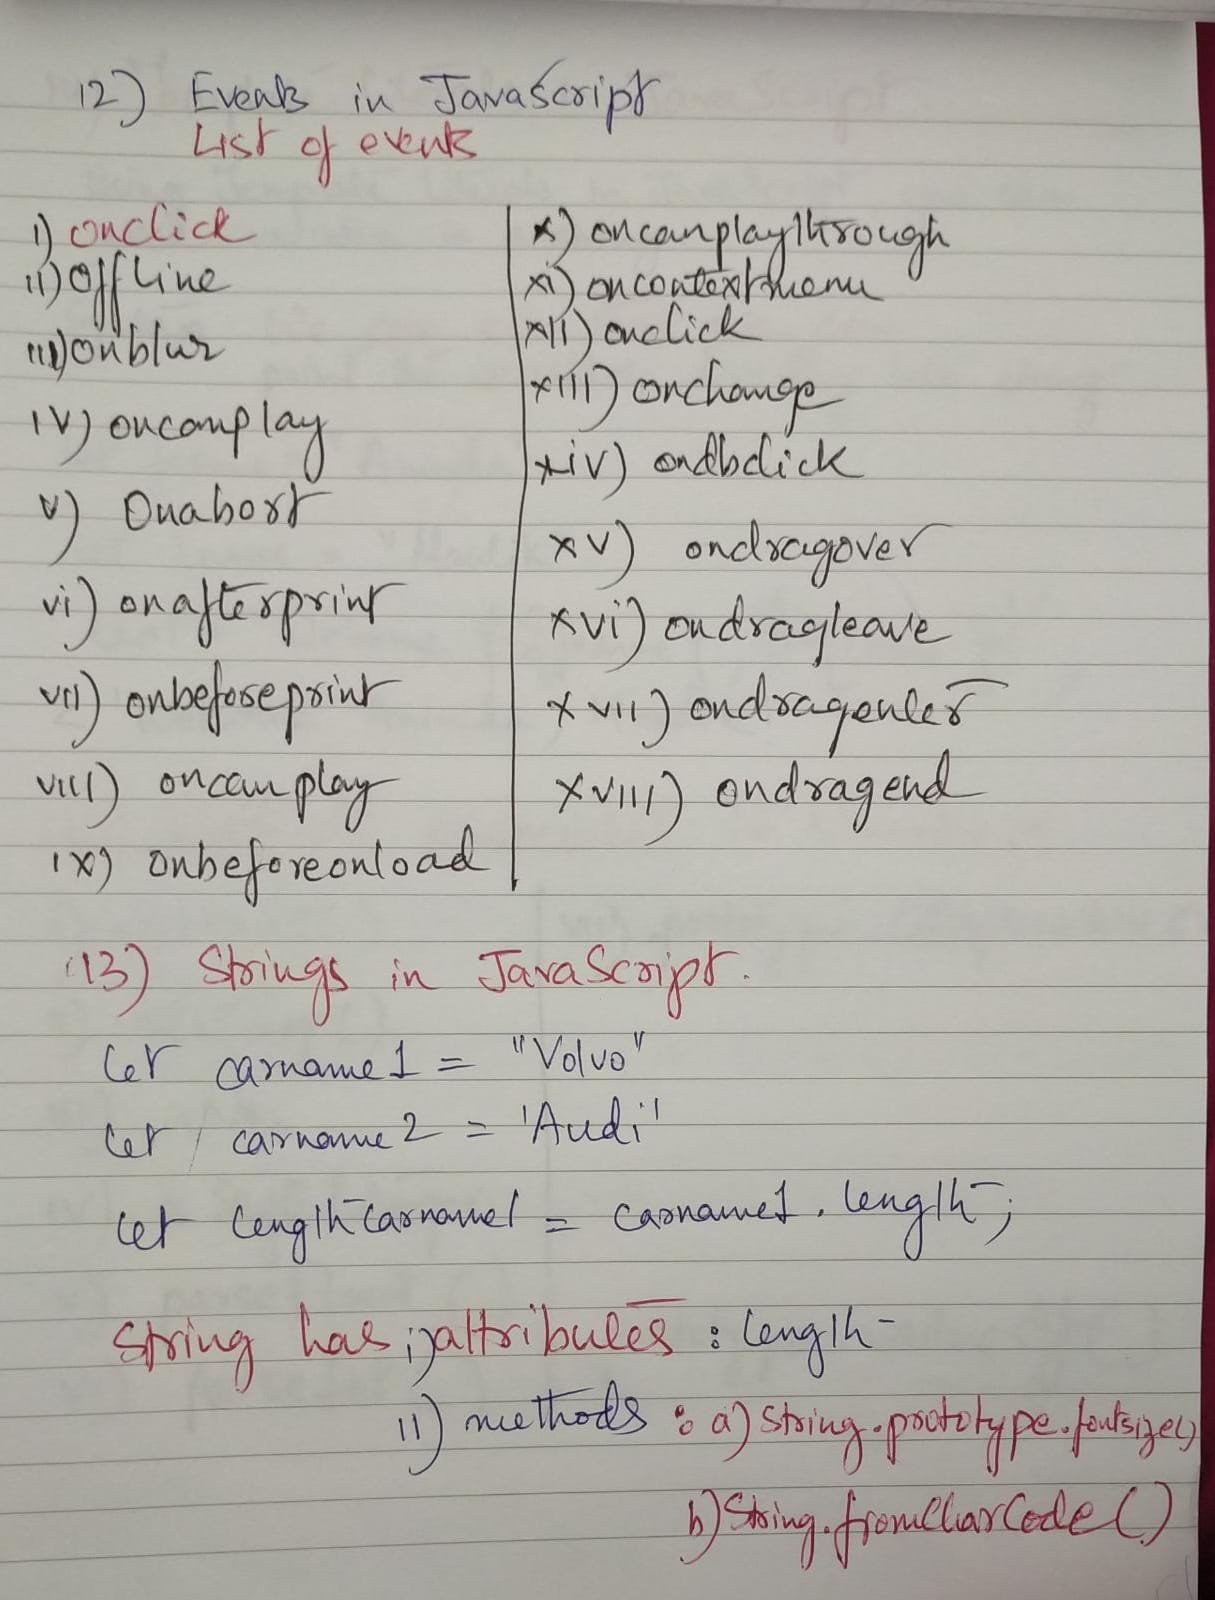 12) Events in JavaScript
List of events
i) onclick
ii) offline
iii) onblur
iv) oncanplay
v) Onabort
vi) onafterprint
vii) onbeforeprint
viii) oncanplay
ix) onbeforeonload
x) oncanplaythrough
xi) oncontextmenu
xii) onclick
xiii) onchange
xiv) ondbclick
xv) ondragover
xvi) ondragleave
xvii) ondragenter
xviii) ondragend
13) Strings in JavaScript.
let carname1 = "Volvo"
let carname2 = 'Audi'
let lengthcarname1 = carname1.length;
String has i) attributes : length
ii) methods : a) String.prototype.fontsize()
b) String.fromCharCode()